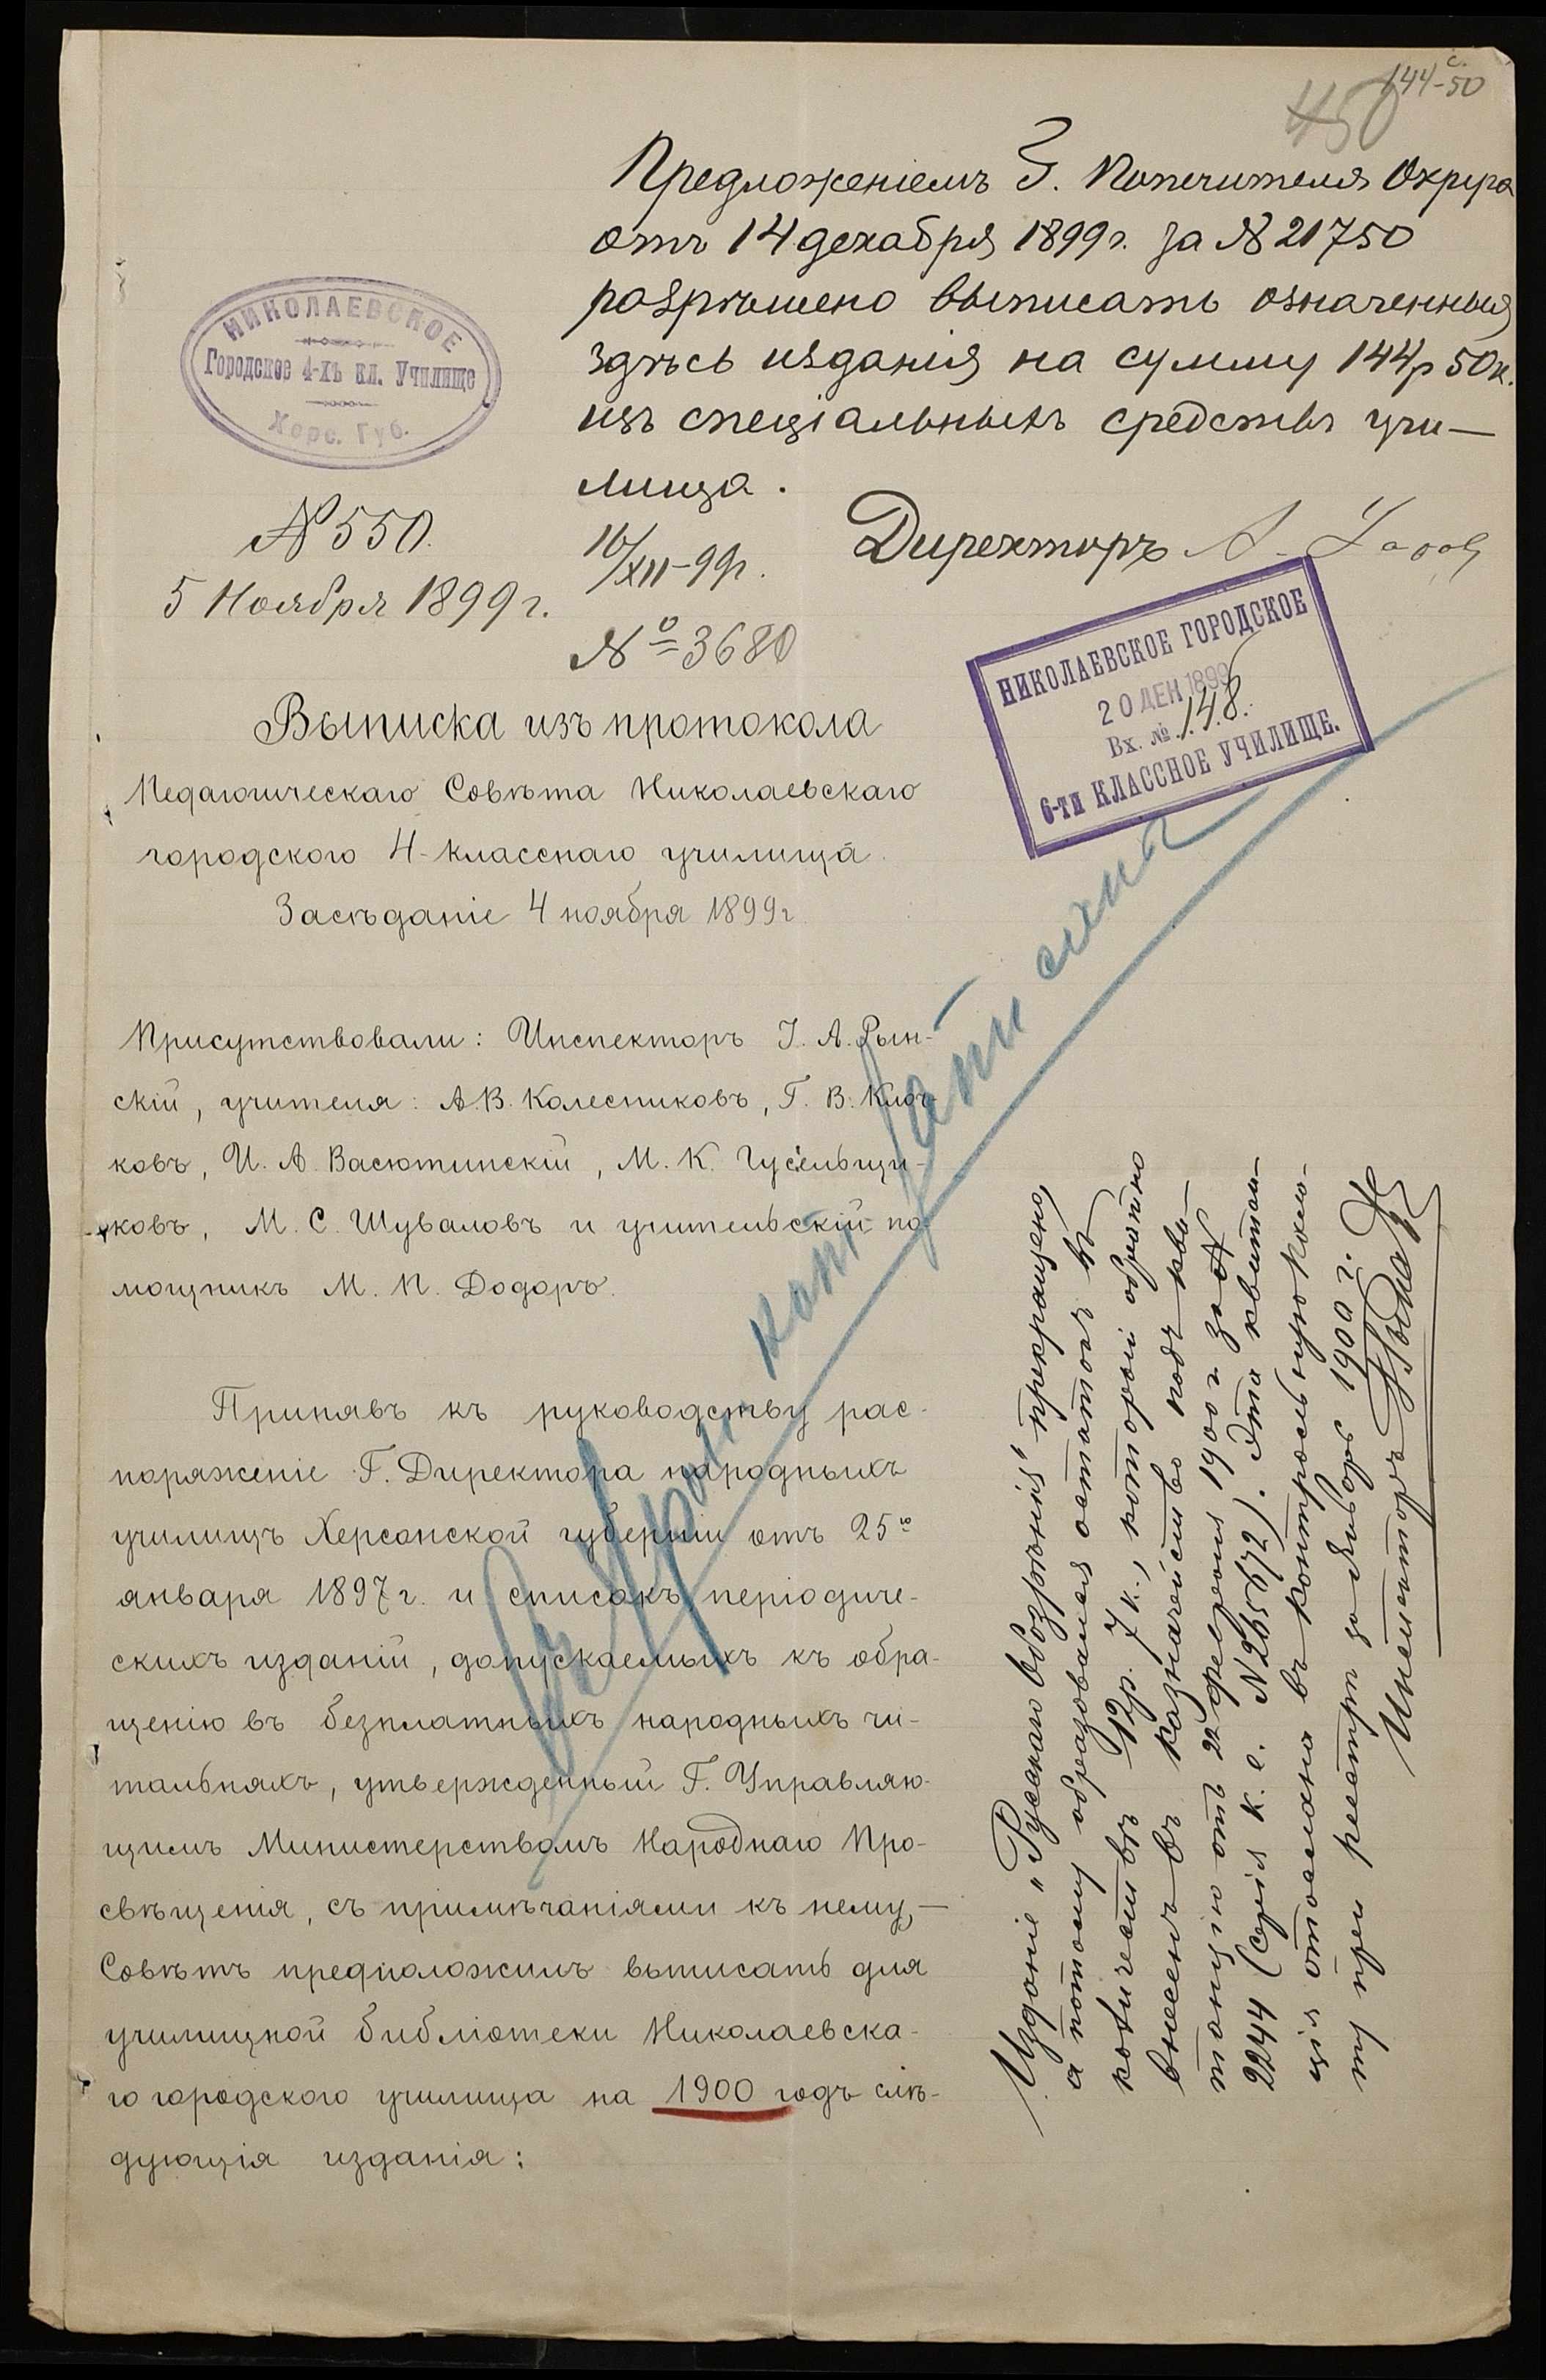 144-50
450
Предложеніемъ Г. Попечителя Округа
отъ 14 декабря 1899 г. за № 21750
разрѣшено выписать означенныя
здѣсь изданія на сумму 144 р 50 к.
изъ спеціальныхъ средствъ учи-
лища.
Директоръ А.
16/XII-99 г.
№ 3680
НИКОЛАЕВСКОЕ
Городское 4-хъ кл. Училище
Херс. Губ.
№ 550.
5 Ноября 1899 г.
НИКОЛАЕВСКОЕ ГОРОДСКОЕ
20 ДЕК 1899
Вх. № 148.
6-ти КЛАССНОЕ УЧИЛИЩЕ.
Выписка изъ протокола
Педагогическаго Совѣта Николаевскаго
городского 4-класснаго училища.
Засѣданіе 4 ноября 1899 г
Присутствовали: Инспекторъ І. А. Рын-
скій, учителя: А. В. Колесниковъ, Г. В. Клоч-
ковъ, И. А. Васютинскій, М. К. Гусельщи-
ковъ, М. С. Шуваловъ и учительскій по-
мощникъ М. П. Додоръ.
Принявъ къ руководству рас-
поряженіе Г. Директора народныхъ
училищъ Херсонской губерніи отъ 25го
января 1897 г. и списокъ періодиче-
скихъ изданій, допускаемыхъ къ обра-
щенію въ безплатныхъ народныхъ чи-
тальняхъ, утвержденный Г. Управляю-
щимъ Министерствомъ Народнаго Про-
свѣщенія, съ примѣчаніями къ нему,—
Совѣтъ предположилъ выписать для
училищной библіотеки Николаевска-
го городского училища на 1900 годъ слѣ-
дующія изданія:
Изданіе „Русскаго Обозрѣнія" прекращено,
а потому образовался остатокъ въ
количествѣ 12 р. 7 к., который обратно
внесенъ въ казначейство подъ кви-
танцію отъ февраля 1900 г за №
2244 (Серія К. с. N 265672). Эта квитан-
ція отослана въ контрольную пала-
ту при реестрѣ за Январь 1900 г.
Инспекторъ Рын